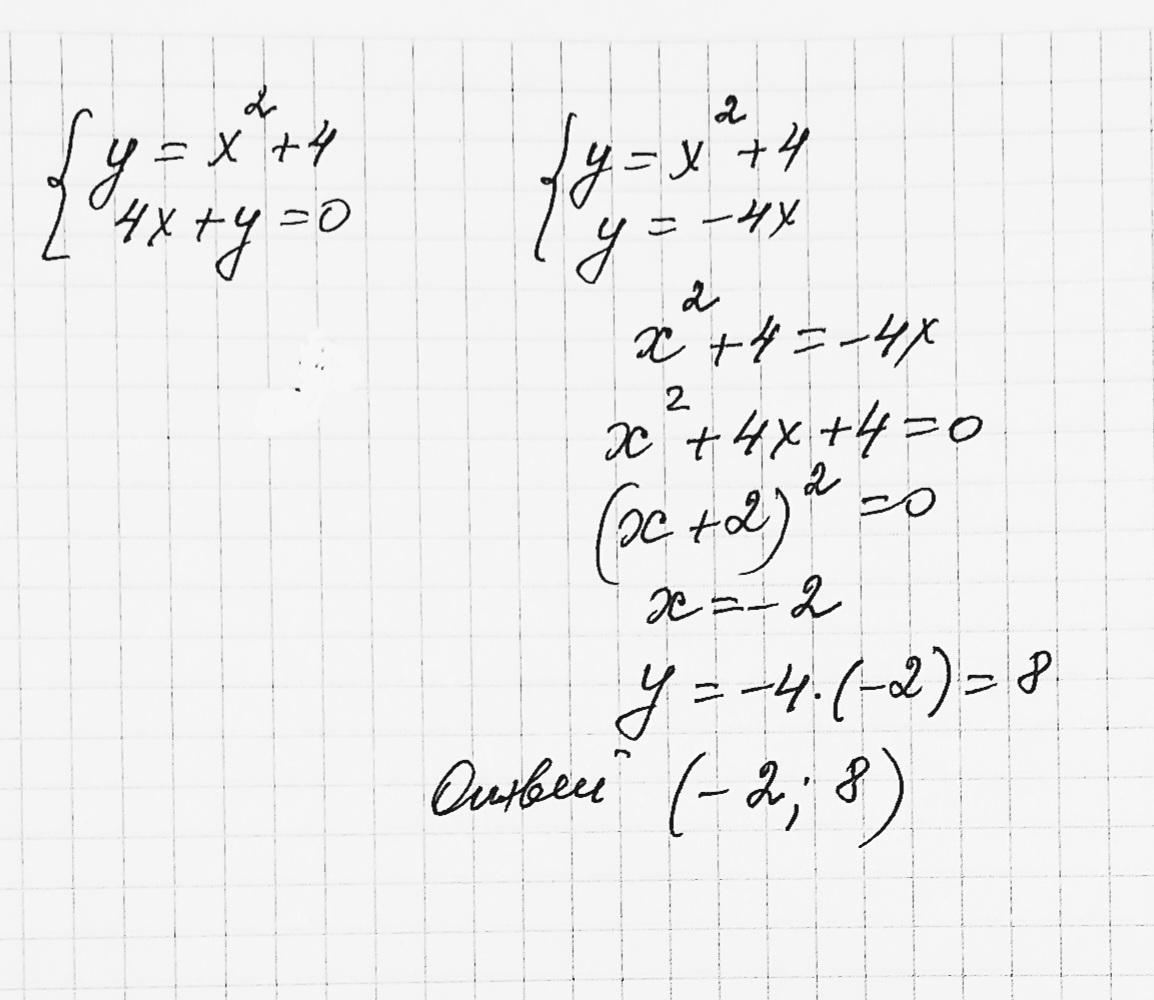 y = x² + 4
4x + y = 0
y = x² + 4
y = -4x
x² + 4 = -4x
x² + 4x + 4 = 0
(x + 2)² = 0
x = -2
y = -4 · (-2) = 8
Ответ (-2; 8)